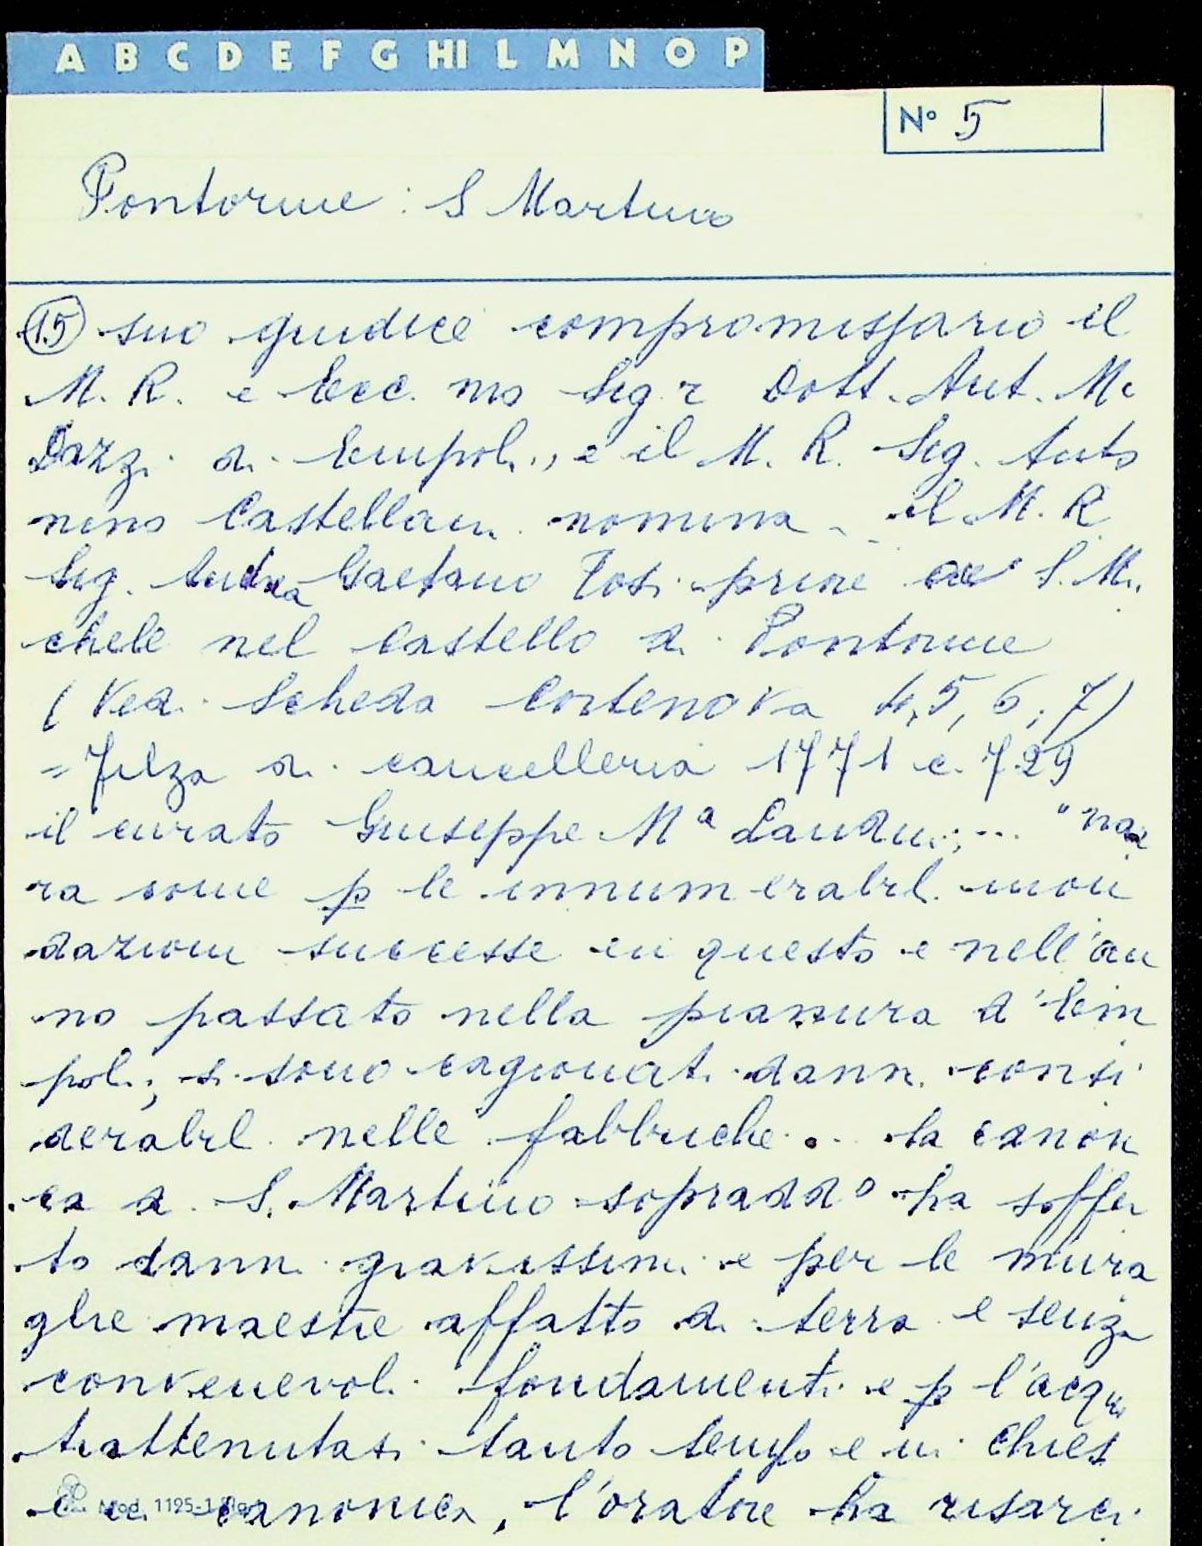 A B C D E F G HI L M N O P
N° 5
Pontorme : S Martino
(15) suo giudice compromissario il
M. R. e Ecc. mo Sig. r Dott. Ant. M.
Dazzi di Empoli, e il M. R. Sig. Anto
nino Castellani nomina il M. R
Sig. Andrea Gaetano Tosi priore di S. Mi
chele nel Castello di Pontorme
(Ved. Scheda Cortenova 4, 5, 6, 7)
= Filza di cancelleria 1771 c. 729
il curato Giuseppe Mª Landini; ... "nar
ra come p le innumerabili inon
dazioni successe in questo e nell'an
no passato nella pianura d'Em
poli, si sono cagionati danni consi
derabili nelle fabbriche . . la canoni
ca di S. Martino sopradd° ha soffer
to danni gravissimi e per le mura
glie maestre affatto di terra e senza
convenevoli fondamenti e p l'acqua
trattenutasi tanto tempo e in chiesa
e in canonica, l'oratore ha risarci
Mod. 1195-1